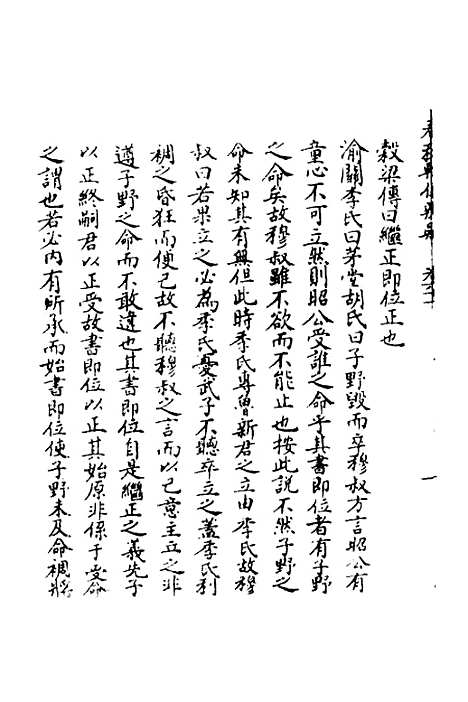 穀梁傳曰繼正即位正也
渝關李氏曰茅堂胡氏曰子野毀而卒穆叔方言昭公有
童心不可立然則昭公受誰之命乎其書即位者有子野
之命矣故穆叔雖不欲而不能止也按此說不然子野之
命未知其有無但此時季氏專魯新君之立由季氏故穆
叔曰若果立之必為季氏憂武子不聽卒立之蓋季氏利
裯之昏狂而便己故不聽穆叔之言而以己意主立之非
遵子野之命而不敢違也其書即位自是繼正之義先子
以正終嗣君以正受故書即位以正其始原非係于受命
之謂也若必內有所承而始書即位使子野未及命裯將
一